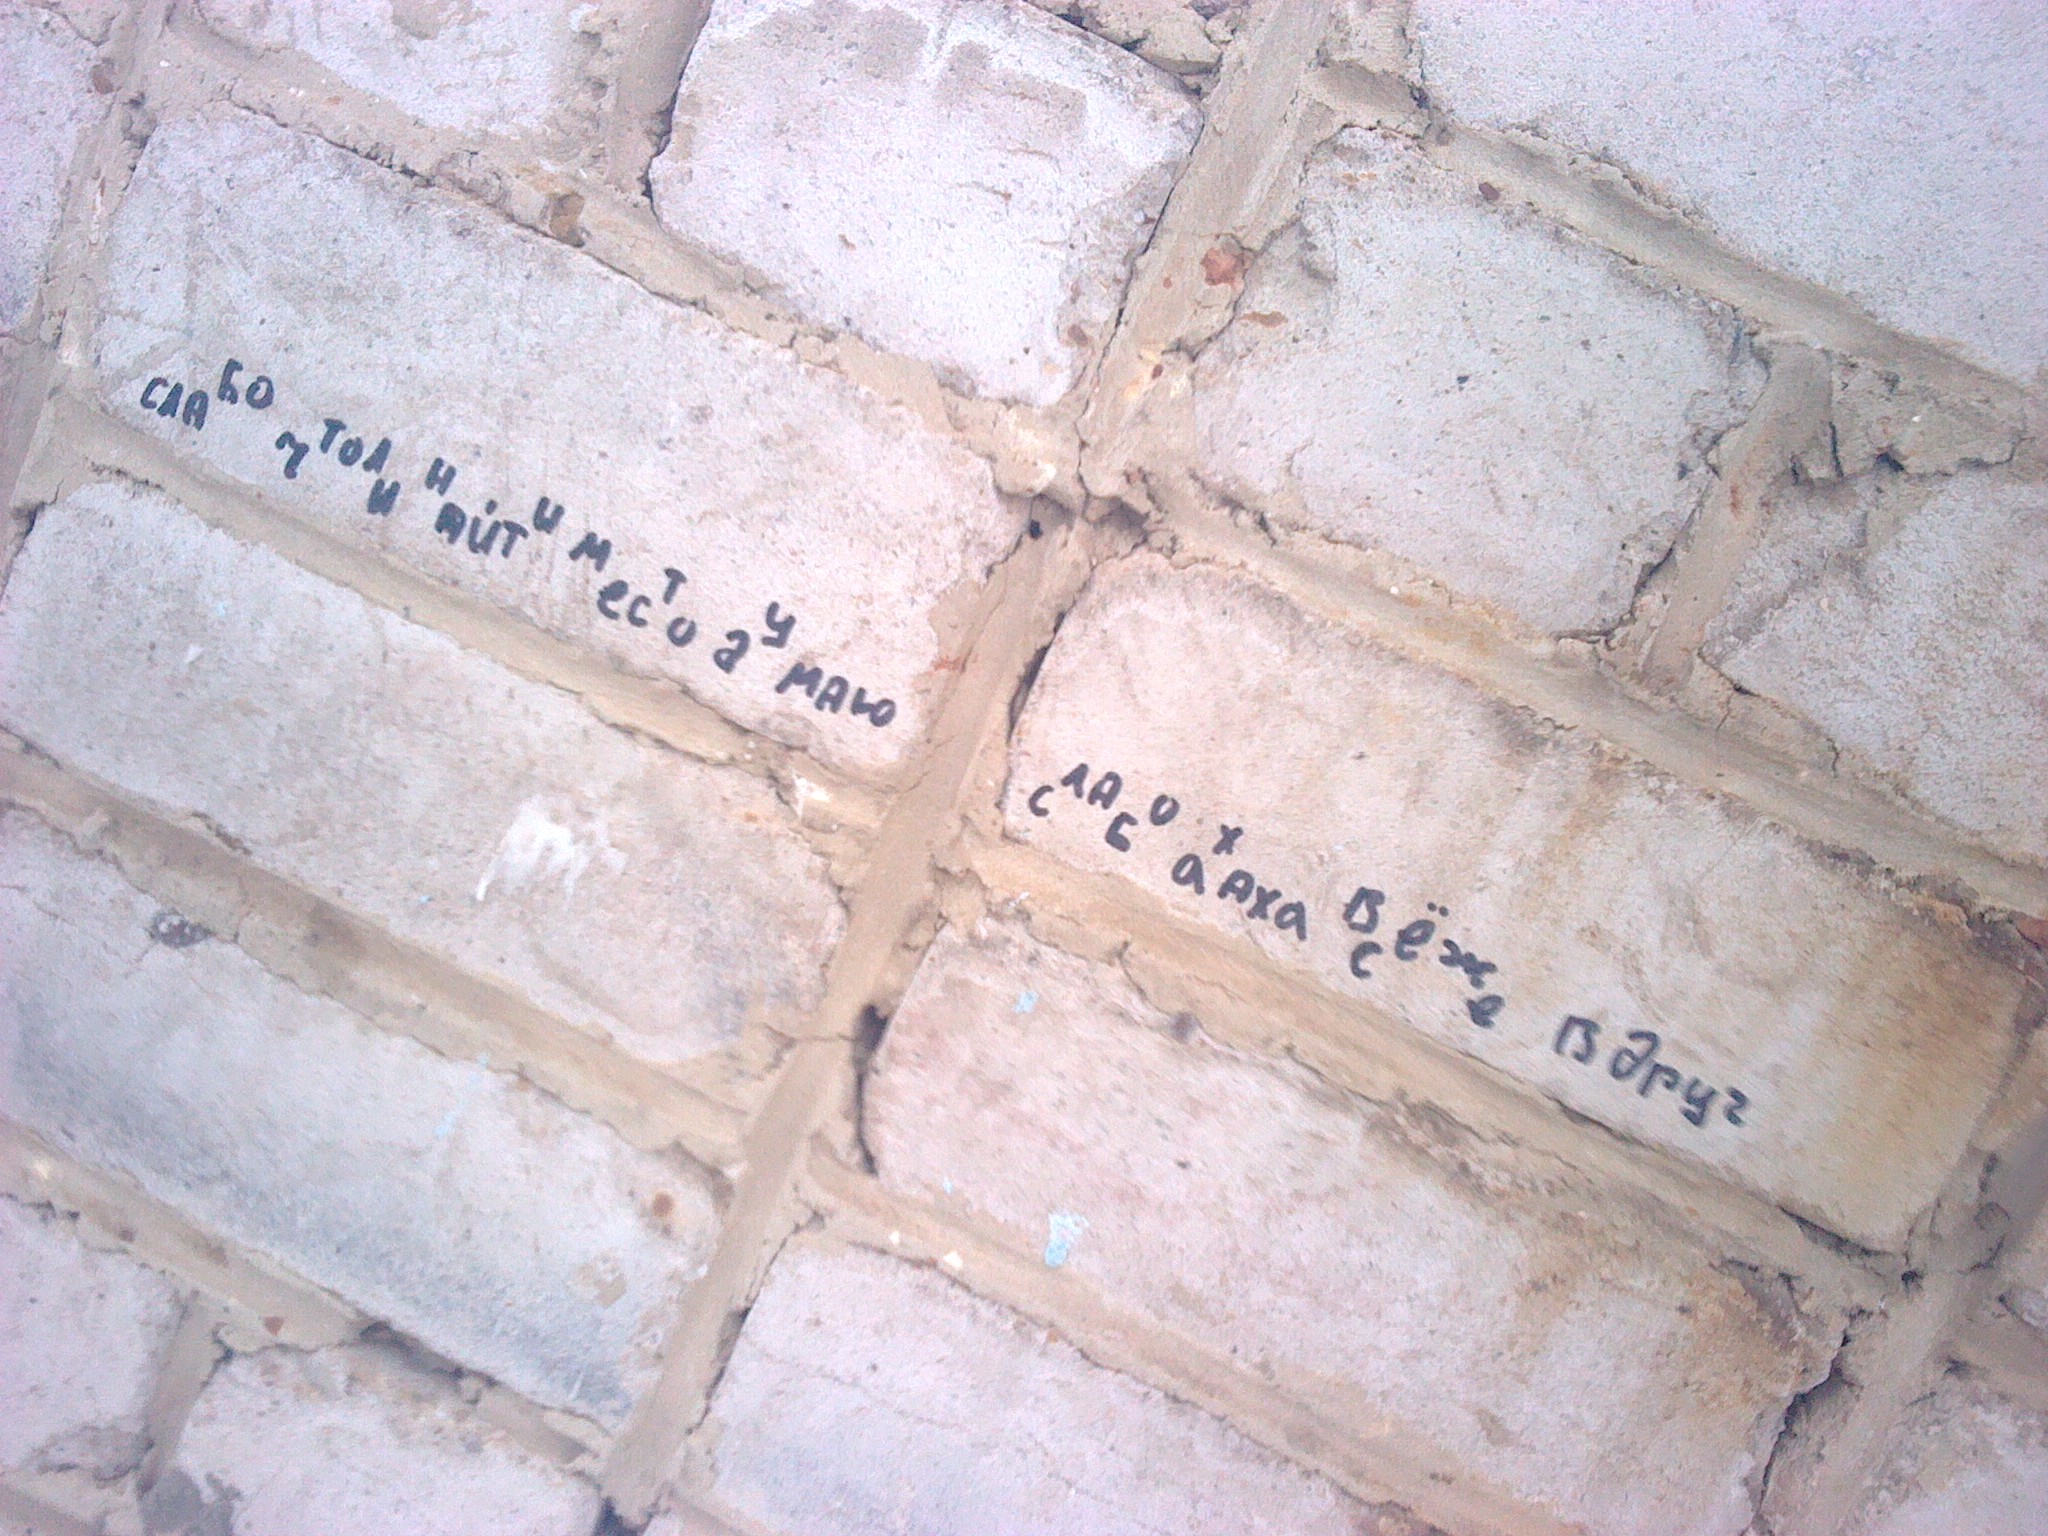 слабо чтоли найти место думаю
слабо хаахаха всёже вдруг